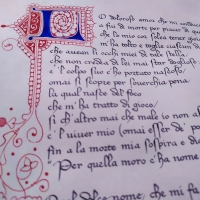 O doloroso amor che mi conduce
a fin di morte per piacer di q
che lo mio cor solea tener gioi
m'ha tolto e toglie ciascun dì
che avean li occhi miei di tale stella
che non credea di lei mai star doglioso
e 'l colpo suo c'ho portato nascoso,
omai si scopre per soverchia pena
la qual nasce del foco
che m'ha tratto di gioco,
sì ch'altro mai che male io non a
e 'l viver mio (omai esser de' po
fin a la morte mia sospira e di
"Per quella moro c'ha nome
nome, che mi fa